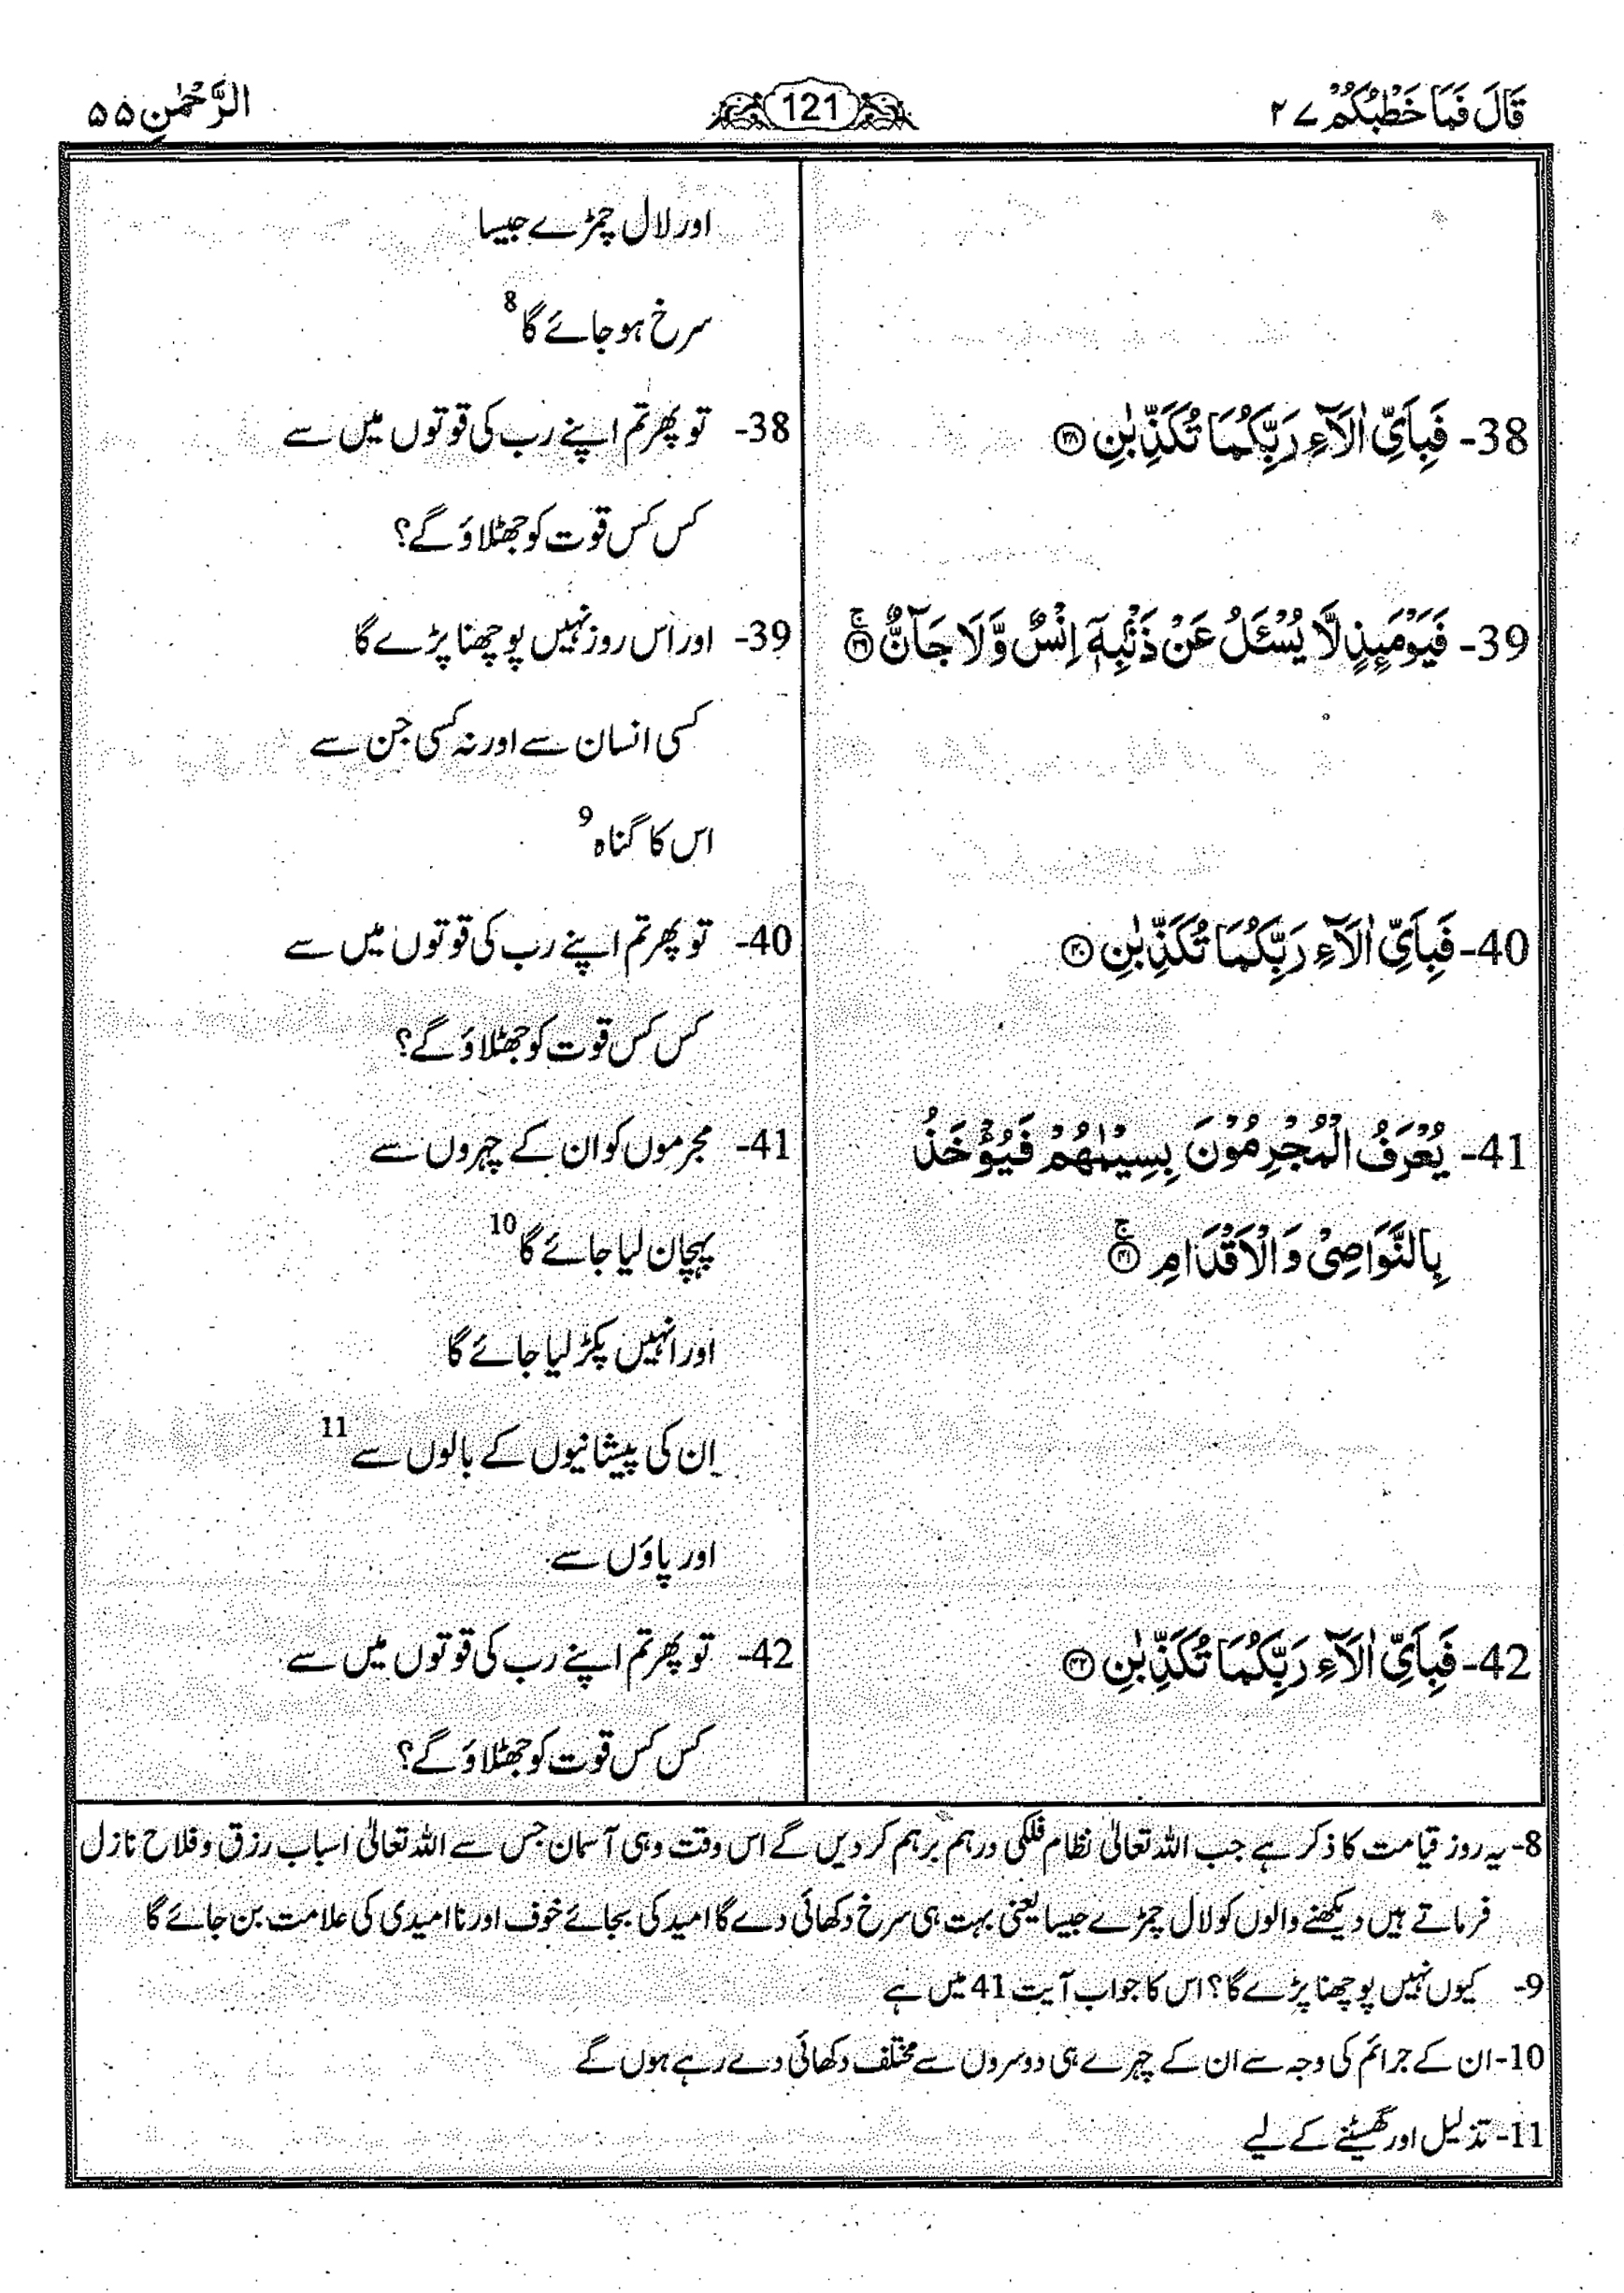 قَالَ فَمَا خَطْبُكُمْ ۲۷
121
الرَّحْمٰنِ ۵۵
اور لال چمڑے جیسا
سرخ ہو جائے گا 8
38- فَبِاَيِّ اٰلَآءِ رَبِّكُمَا تُكَذِّبٰنِ ﴿۳۸﴾
38- تو پھر تم اپنے رب کی قوتوں میں سے
کس کس قوت کو جھٹلاؤ گے؟
39- فَيَوْمَىِٕذٍ لَّا يُسْـَٔلُ عَنْ ذَنْۢبِهٖۤ اِنْسٌ وَّلَا جَآنٌّ ﴿۳۹﴾ۚ
39- اور اس روز نہیں پوچھنا پڑے گا
کسی انسان سے اور نہ کسی جن سے
اس کا گناہ 9
40- فَبِاَيِّ اٰلَآءِ رَبِّكُمَا تُكَذِّبٰنِ ﴿۴۰﴾
40- تو پھر تم اپنے رب کی قوتوں میں سے
کس کس قوت کو جھٹلاؤ گے؟
41- يُعْرَفُ الْمُجْرِمُوْنَ بِسِيْمٰىهُمْ فَيُؤْخَذُ
بِالنَّوَاصِيْ وَالْاَقْدَامِ ﴿۴۱﴾ۚ
41- مجرموں کو ان کے چہروں سے
پہچان لیا جائے گا 10
اور انہیں پکڑ لیا جائے گا
اِن کی پیشانیوں کے بالوں سے 11
اور پاؤں سے
42- فَبِاَيِّ اٰلَآءِ رَبِّكُمَا تُكَذِّبٰنِ ﴿۴۲﴾
42- تو پھر تم اپنے رب کی قوتوں میں سے
کس کس قوت کو جھٹلاؤ گے؟
8- یہ روز قیامت کا ذکر ہے جب اللہ تعالیٰ نظام فلکی درہم برہم کر دیں گے اس وقت وہی آسمان جس سے اللہ تعالیٰ اسباب رزق و فلاح نازل
فرماتے ہیں دیکھنے والوں کو لال چمڑے جیسا یعنی بہت ہی سرخ دکھائی دے گا امید کی بجائے خوف اور نا امیدی کی علامت بن جائے گا
9- کیوں نہیں پوچھنا پڑے گا؟ اس کا جواب آیت 41 میں ہے
10- ان کے جرائم کی وجہ سے ان کے چہرے ہی دوسروں سے مختلف دکھائی دے رہے ہوں گے
11- تذلیل اور گھسیٹنے کے لیے